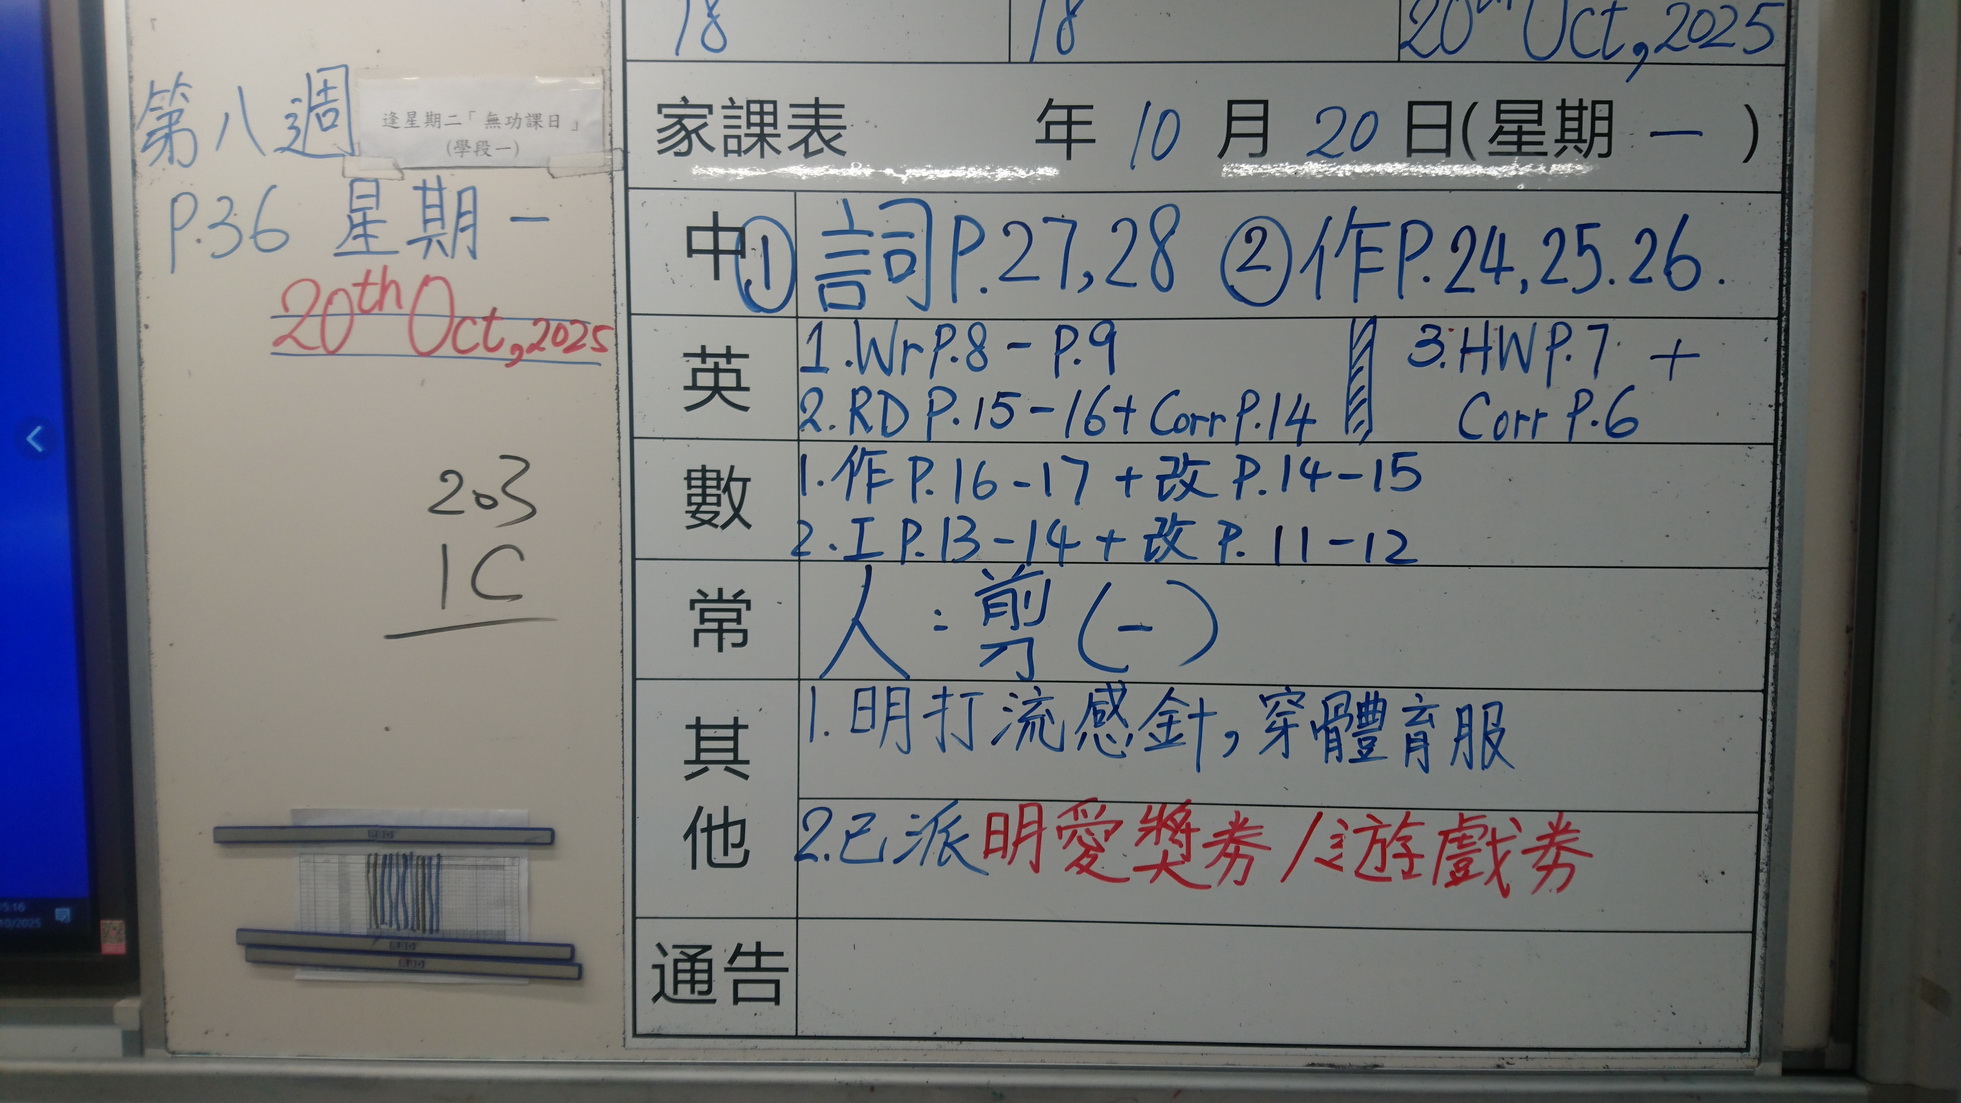 18 18 20th Oct, 2025
第八週
逢星期二「無功課日」
(學段一)
P.36 星期一
20th Oct, 2025
203
1C
家課表 年 10 月 20 日(星期 一 )
中 ① 詞P.27,28 ②作P.24,25.26.
英 1.Wr P.8 - P.9
2. RD P.15-16+ Corr P.14
3.HW P.7 +
Corr P.6
數 1.作 P.16-17 +改 P.14-15
2.工 P.13-14 + 改 P. 11-12
常 人:剪(一)
其他 1.明打流感針,穿體育服
2.已派明愛獎券/遊戲券
通告